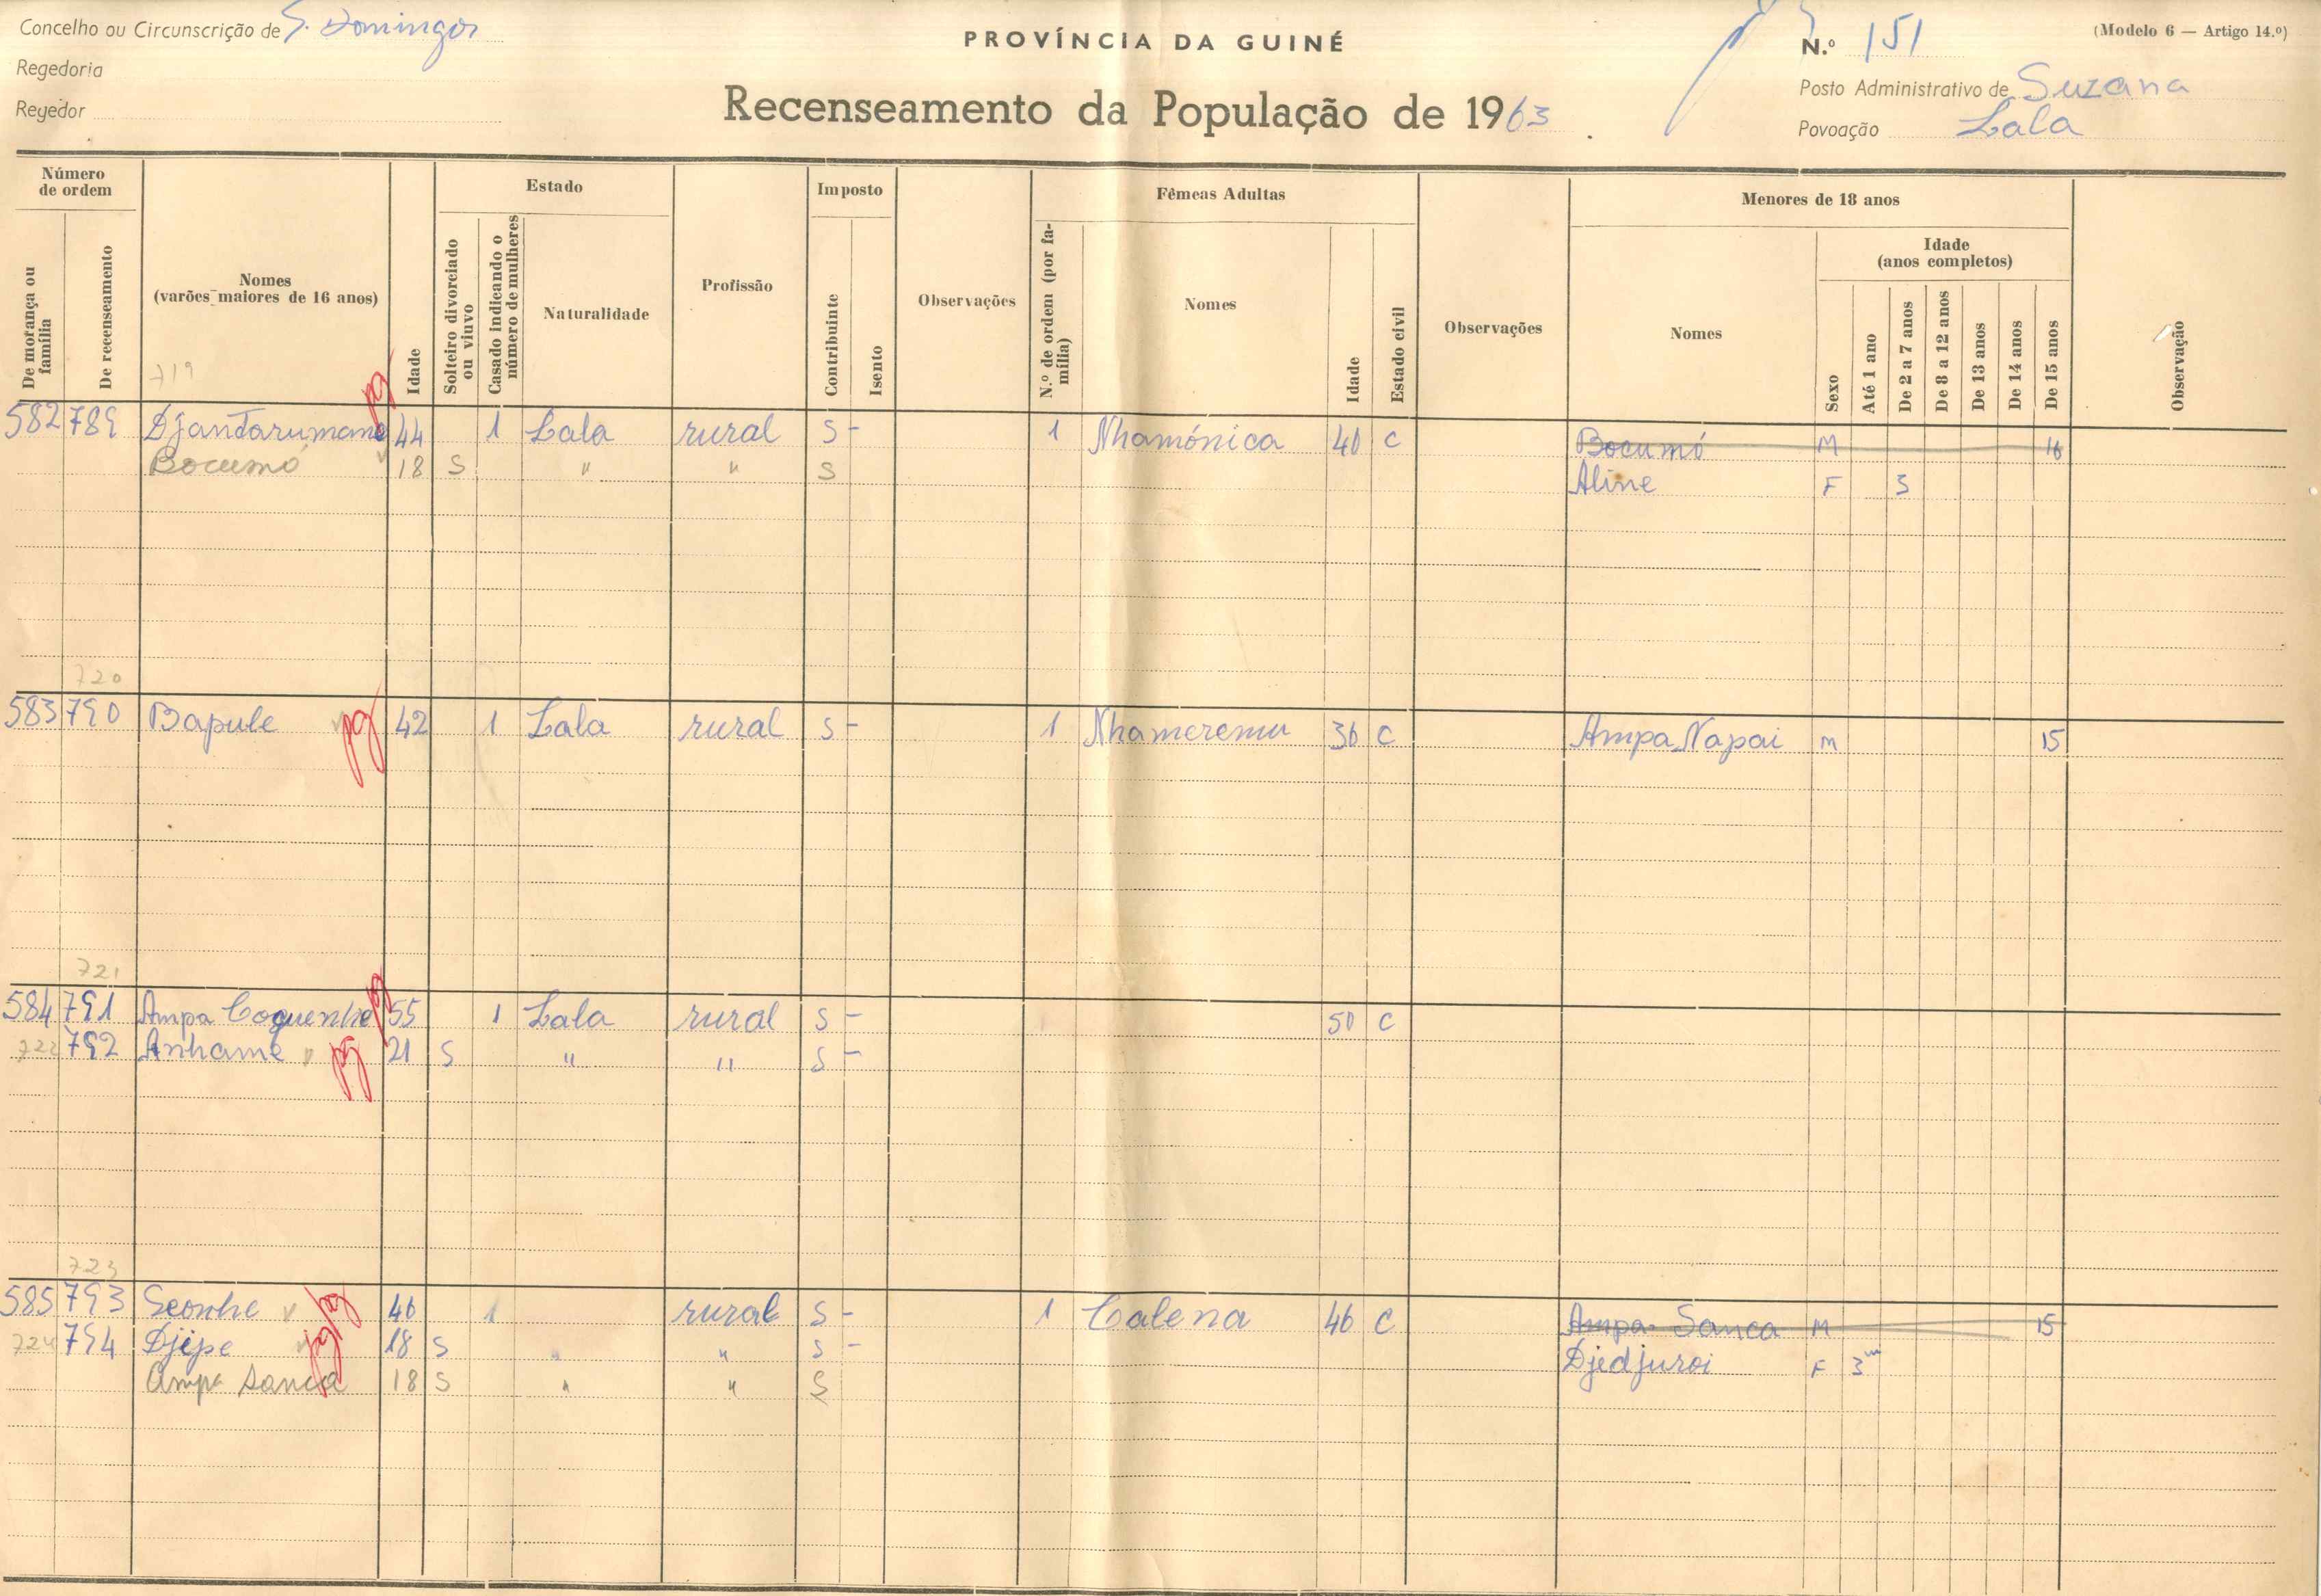 Concelho ou Circunscrição de S. Domingos
Regedoria
Regedor
PROVÍNCIA DA GUINÉ
Recenseamento da População de 1963.
N.º 151
(Modelo 6 — Artigo 14.º)
Posto Administrativo de Suzana
Povoação Lala
Número de ordem
De morança ou família
De recenseamento
Nomes
(varões maiores de 16 anos)
Idade
Estado
Solteiro divorciado ou viuvo
Casado indicando o número de mulheres
Naturalidade
Profissão
Imposto
Contribuinte
Isento
Observações
Fêmeas Adultas
N.º de ordem (por família)
Nomes
Idade
Estado civil
Observações
Menores de 18 anos
Nomes
Sexo
Idade
(anos completos)
Até 1 ano
De 2 a 7 anos
De 8 a 12 anos
De 13 anos
De 14 anos
De 15 anos
Observação
719
582 789 Djantarumane pg 44 1 Lala rural S - 1 Nhamónica 40 C Bocumó M 16
Bocumó 18 S " " S Aline F 3
720
583 790 Bapule pg 42 1 Lala rural S - 1 Nhameremu 36 C Ampa Napai M 15
721
584 791 Ampa Coquenhe pg 55 1 Lala rural S - 50 C
722 792 Anhame pg 21 S " " S -
723
585 793 Seonhe pg 46 1 rural S - 1 Calena 46 C Ampa Sanca M 15
724 794 Djipe pg 18 S " " S - Djedjuroi F 3m
Ampa Sanca 18 S " " S